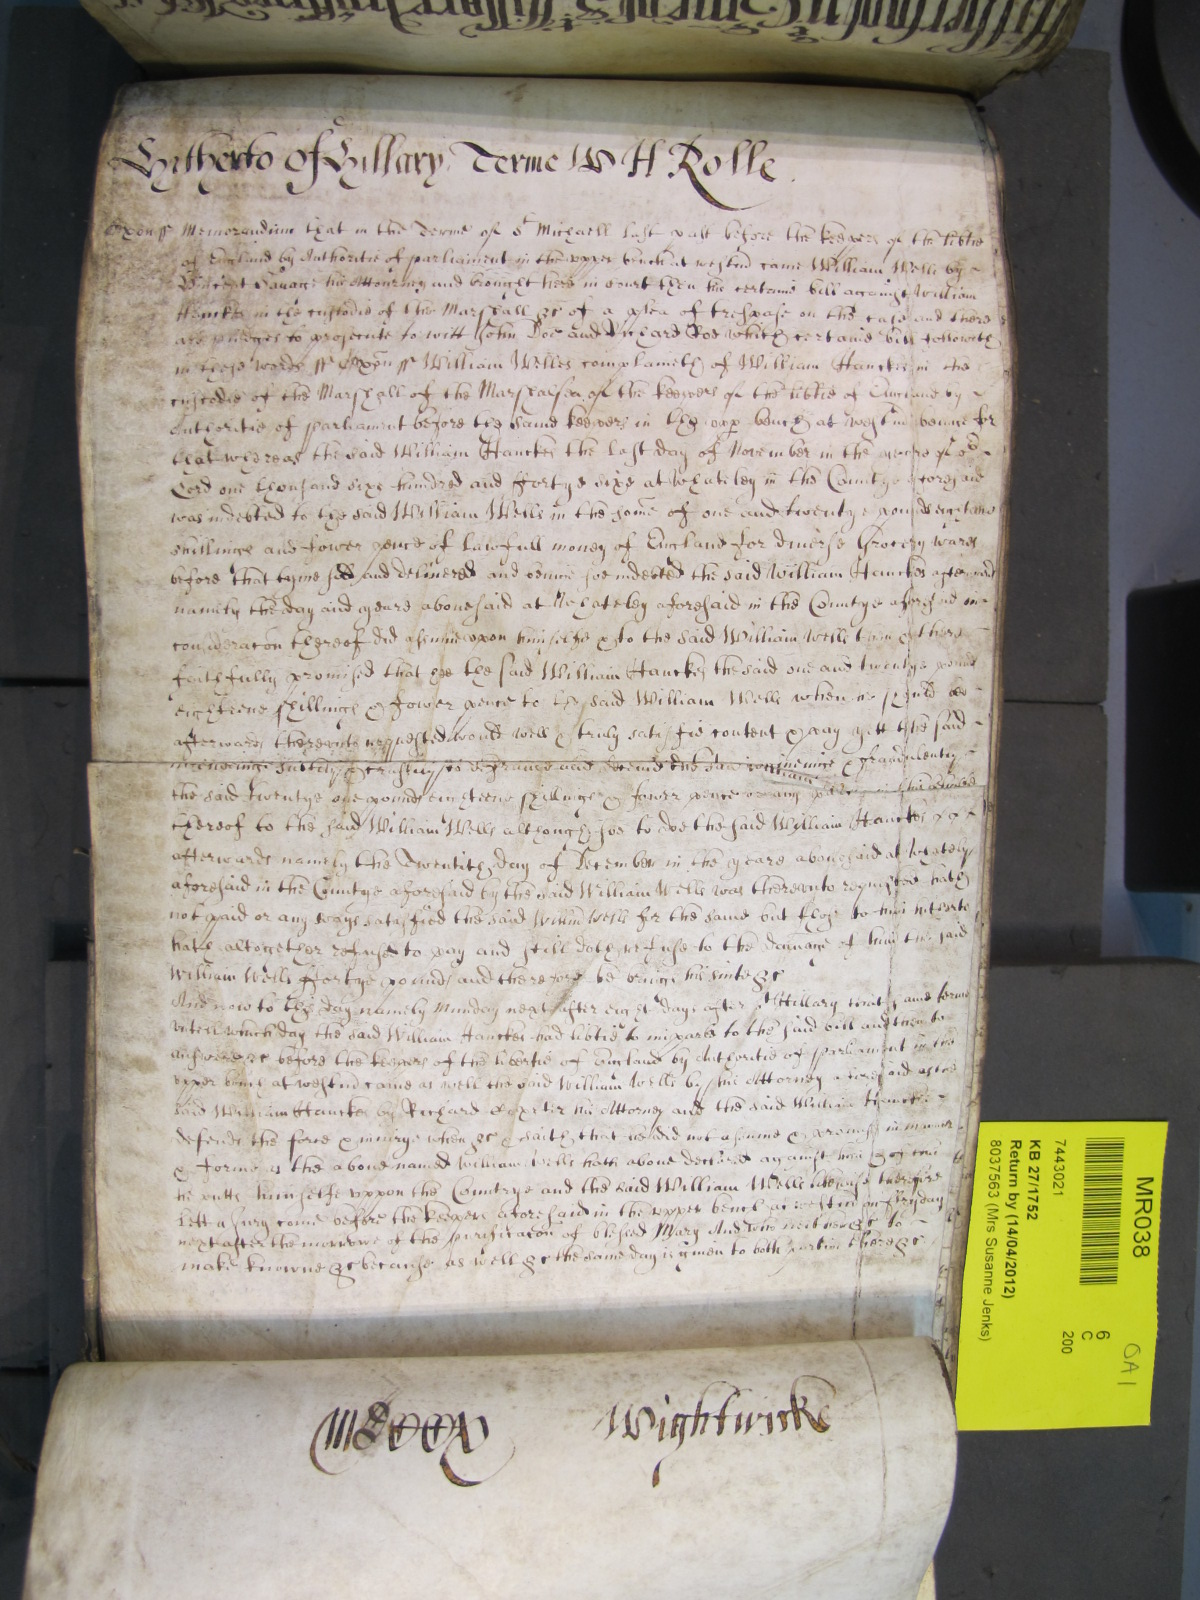 Hitherto of Hillary Terme W H Rolle
Oxon ss Memorandum that in the Terme of St Michaell last past before the keepers of the libtie
of England by Authoritie of parliament in the upper bench at westm came William Wells by
Vincent his Attourney and brought here in court then his certaine bill against William
Hanckes in the custodie of the Marshall &c of a plea of trespase on the case and there
are pledges to prosecute to witt John Doe and Richard Roe which certaine bill followeth
in these words ss Oxon ss William Welles complaineth of William Hanckes in the
custodie of the Marshall of the Marshalsea of the keepers of the libtie of England by
Authoritie of parliament before the same keepers in the upp bench at westm for
that whereas the said William Hanckes the last day of November in the yeare of or
Lord one thousand sixe hundred and ffortye sixe at Whateley in the Countye aforesaid
was indebted to the said William Wells in the some of one and twentye pounds eighteene
shillings and fower pence of lawfull money of England for diverse Grocery wares
before that tyme sold and delivered and beinge soe indebted the said William Hanckes afterward
namely the day and yeare abovesaid at Whateley aforesaid in the Countye aforesaid in
consideracon thereof did assume upon himselfe & to the said William Wells then & there
faithfully promised that hee the said William Hanckes the said one and twentye pounds
eighteene shillings & fower pence to the said William Wells when he should be
afterwards thereunto requested would well & truly satisfie content & pay yett the said
& fraudulently
the said twentye one pounds eighteene shillings & fower pence or any
thereof to the said William Wells although soe to doe the said William Hanckes
afterwards namely the Twentith day of December in the yeare abovesaid at Whately
aforesaid in the Countye aforesaid by the said William Wells was thereunto requested hath
not paid or any wayes satisfied the said Willm Wells for the same but those to him hitherto
hath altogether refused to pay and still doth refuse to the damage of him the said
William Wells ffortye pounds and therefore he brings his suite &c
And now to this day namely Munday next after eight dayes after St Hillary this same terme
untill which day the said William Hanckes had libtie to imparle to the said bill and then to
answere &c before the keepers of the libertie of England by Authoritie of parliament in the
upper bench at westm came as well the said William Wells by his Attorney aforesaid as the
said William Hanckes by Richard his Attorney and the said William Hanckes
defends the force & iniurye when &c & saith that he did not assume & promise in manner
& forme as the above named William Wells hath above declared against him & of this
he putts himselfe uppon the Countrye and the said William Wells likewise therefore
Lett a Jury come before the keepers aforesaid in the upper bench at westm on ffryday
next after the morrowe of the purificacon of blessed Mary And who neither &c to
make knowne &c because as well &c the same day is given to both parties there &c
Wightwicke
MR038
6
C
200
7443021
KB 27/1752
Return by (14/04/2012)
8037563 (Mrs Susanne Jenks)
OA1